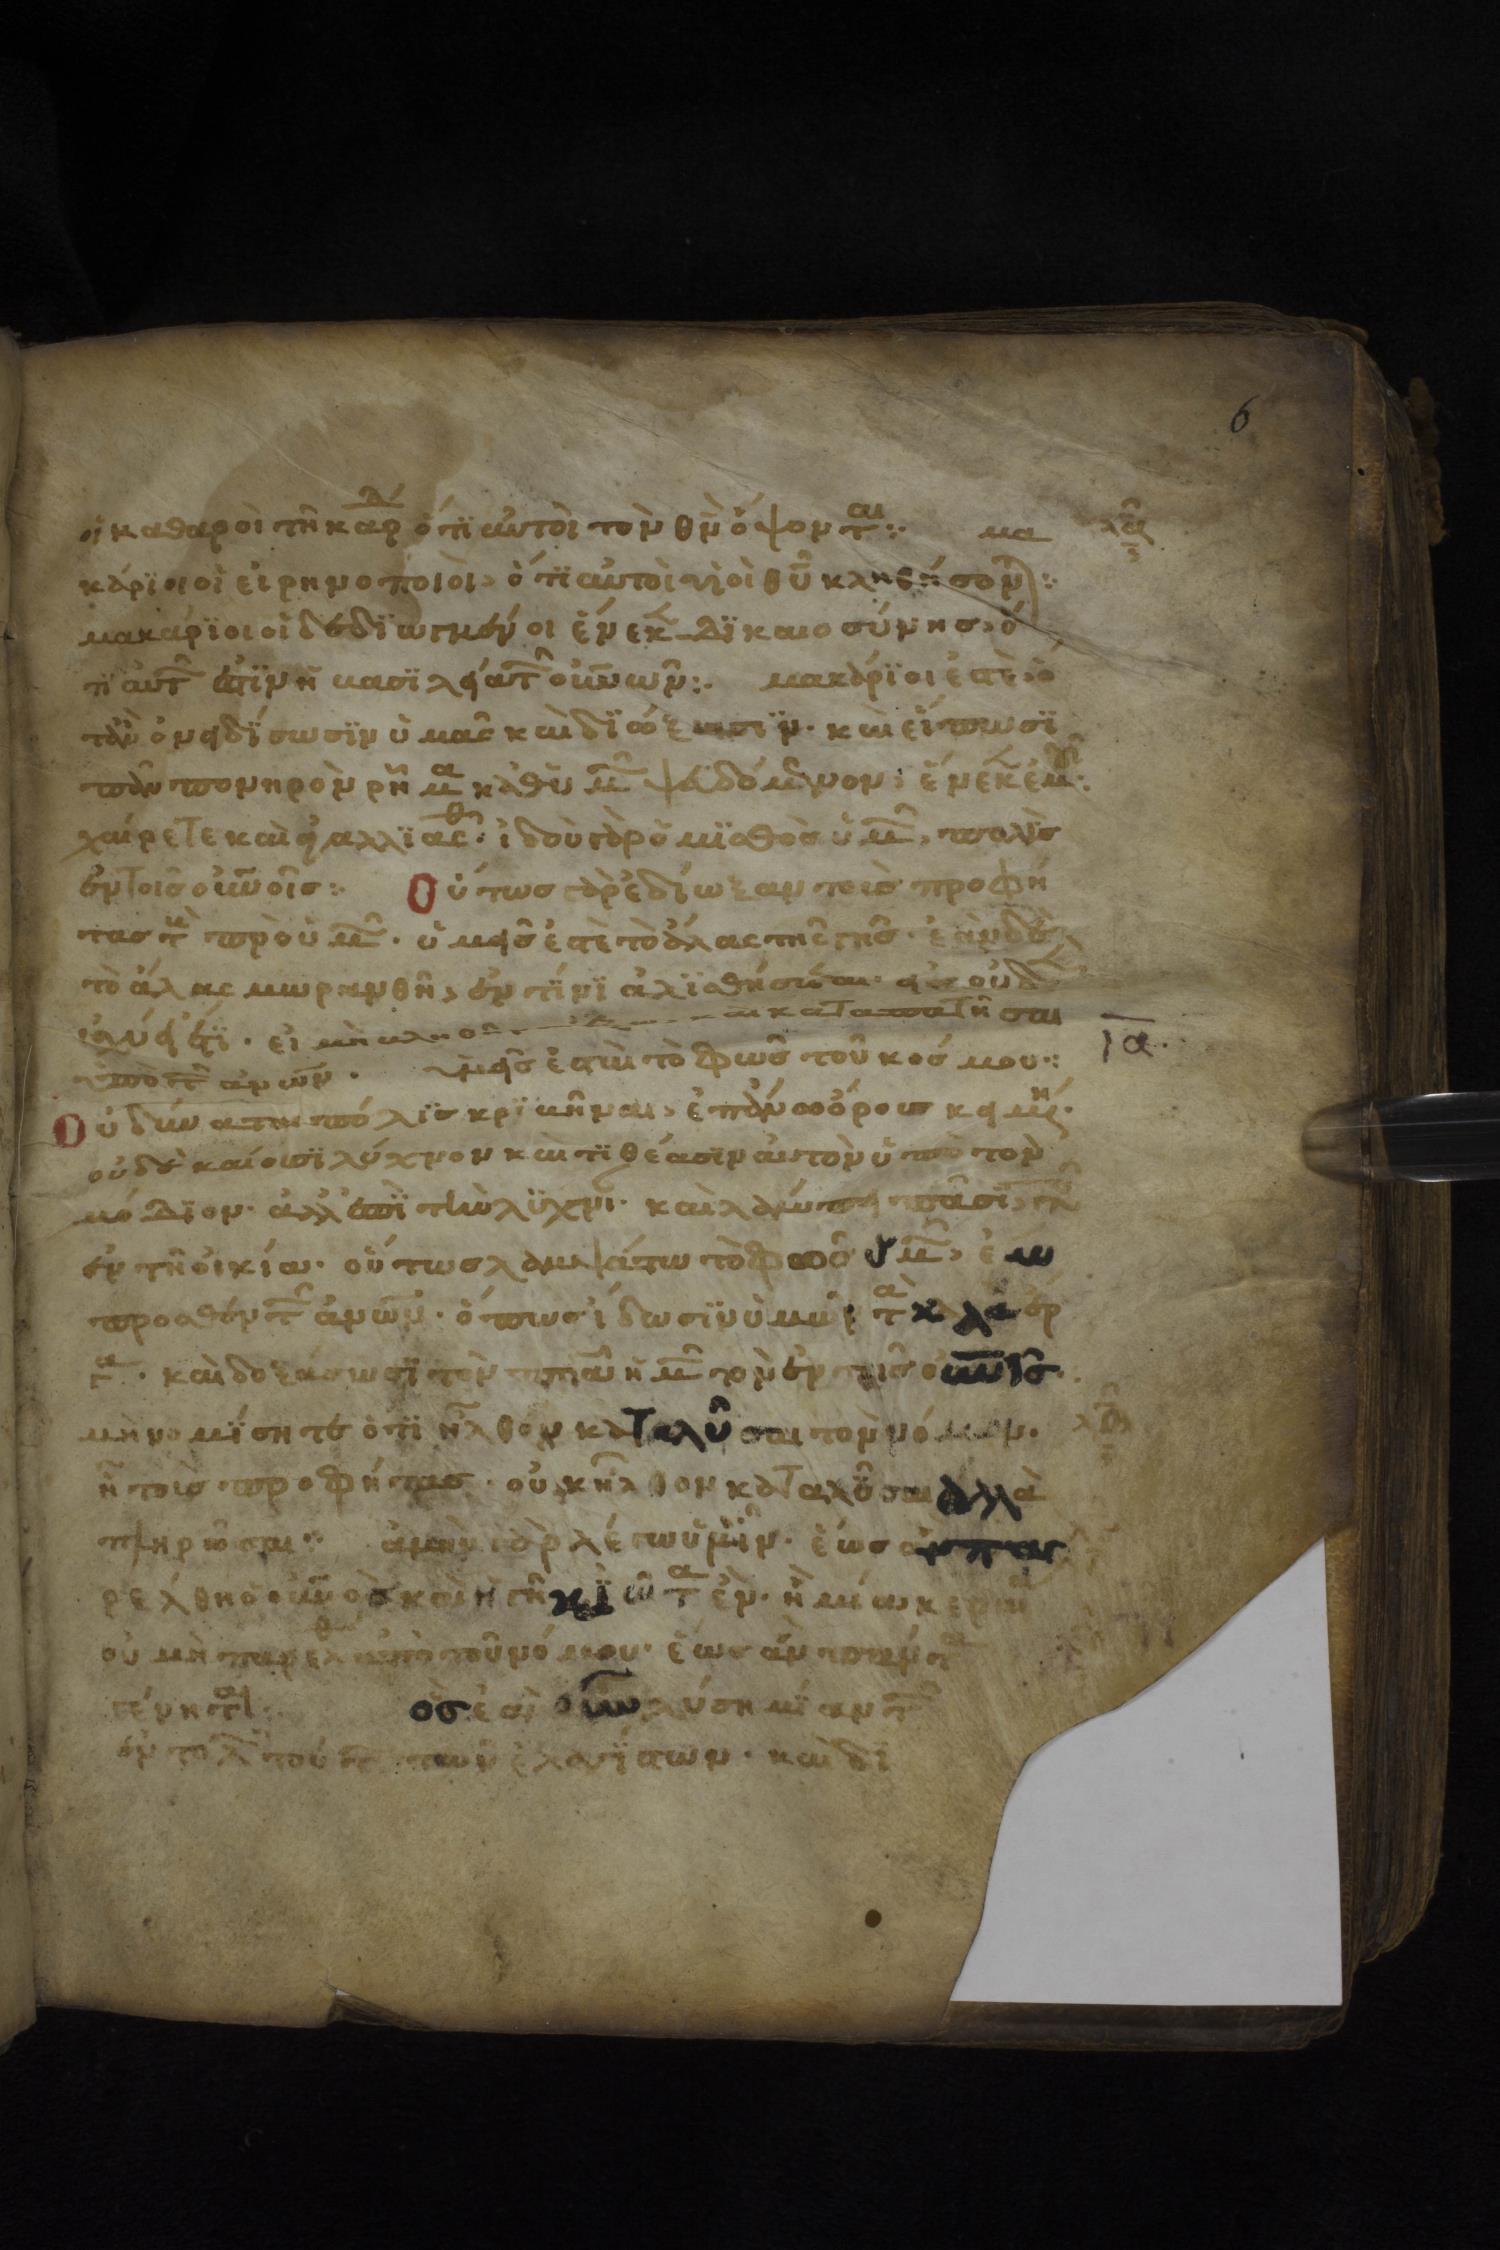 6
οἱ καθαροὶ τῆ καρδ ὅτι αὐτοὶ τὸν θν ὄψοντ αι: μα
κάριοι οἱ εἰρηνοποιοὶ, ὅτι αὐτοὶ υἱοὶ θυ κληθήσον:
μακάριοι οἱ δεδιωγμένοι ἕνεκ δικαιοσύνησ, ὅ
τι αὐτ ἐστὶν ἡ βασιλεία τ οὐνων: μακάριοι ἐστὲ, ὅ
τὰν ὀνειδίσωσιν ὑμας καὶ διώξωσιν. καὶ εἴπωσι
πᾶν πονηρὸν ρῆμα καθ ὑμ ψευδόμενον, ἕνεκ ἐμου:
χαίρετε καὶ ἀγαλλιασθ. ἰδοὺ γὰρ ὁ μισθὸσ ὑμ, πολὺσ
ἐν τοισ οὐνοισ: Οὕτωσ γὰρ ἐδίωξαν τοὺσ προφή
τασ τ πρὸ ὑμ. ὑμεῖσ ἐστὲ τὸ ἅλασ τῆσ γῆσ. ἐὰν δὲ
τὸ ἅλασ μωρανθῆ, ἐν τίνι ἁλισθήσεται. εἰσ οὐδὲν
ἰσχύει ἔτι. εἰ μὴ καὶ καταπατῆσαι
ὑπὸ τ ἀνων. ὑμεῖσ ἐσται τὸ φῶσ τοῦ κόσμου: ια.
Οὐ δύναται πόλισ κριβῆναι, ἐπάνω ὄρουσ κειμένη.
οὐδὲ καίουσι λύχνον καὶ τιθέασιν αὐτὸν ὑπὸ τὸν
μόδιον. ἀλλ ἐπὶ τὴν λυχνι. καὶ λάμπει πᾶσι τ
ἐν τῆ οἰκία. οὕτωσ λαμψάτω τὸ φῶσ ὑμ, ἐμ
προσθεν τ ἀνων. ὅπωσ ἴδωσιν ὑμῶν τὰ καλὰ ἐρ
γα. καὶ δοξάσωσι τὸν πρα ἡμ τὸν ἐν τοῖσ οὐνοισ.
μὴ νομίσητε ὅτι ἦλθον καταλῦσαι τὸν νόμον.
ἢ τοὺσ προφήτασ. οὐκ ἦλθον καταλῦσαι ἀλλὰ
πληρῶσαι: ἀμὴν γὰρ λέγω ὑμῖν. ἕως ἂν πα
ρέλθη ὁ οὐνοσ καὶ ἡ γῆ κὶ ἰῶτα ἓν. ἢ μία κεραία
οὐ μὴ παρελθ ἀπὸ τοῦ νόμου. ἕωσ ἂν πάντα
γένητ: ὃσ ἐὰν οὖν λύση μίαν τ
ἐντολ τούτ των ἐλαχίστων. καὶ δι